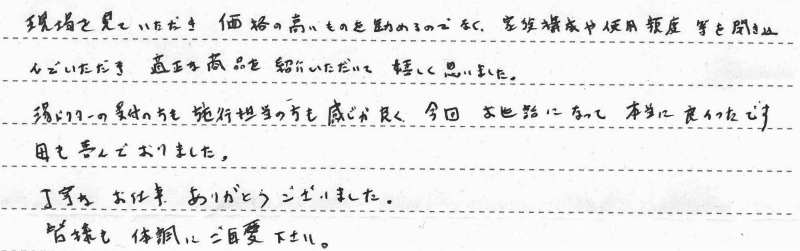 現場を見ていただき 価格の高いものを勧めるのでなく、家族構成や使用頻度 等を聞き込
んでいただき 適正な商品を紹介いただいて 嬉しく思いました。
湯ドクターの受付の方も施行担当の方も感じが良く 今回 お世話になって 本当に良かったです
母も喜んでおりました。
丁寧な お仕事 ありがとうございました。
皆様も 体調にご自愛下さい。